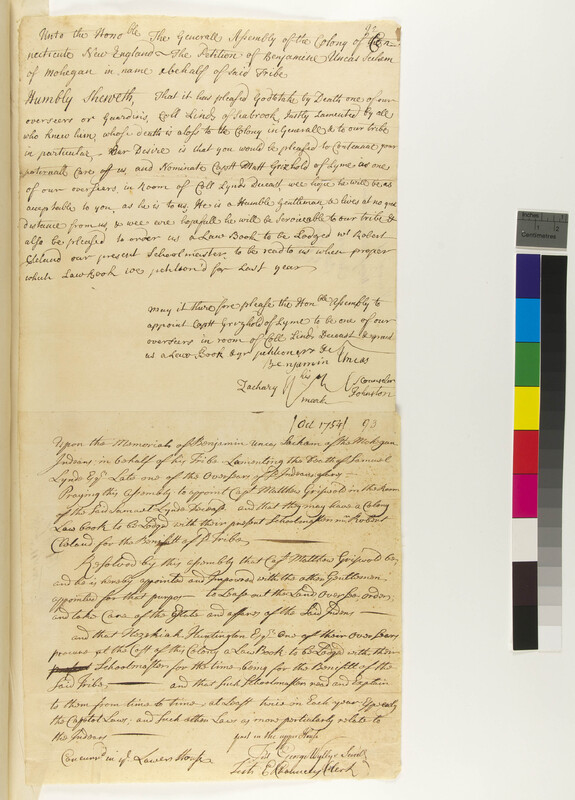 Unto the Hono:ble The Generall Assembly of the Colony of Con=
necticute New England — The Petition of Benjamine Uncas Sachem
of Mohegan in name & behalf of said Tribe
Humbly Sheweth, That it has pleased God to take by Death one of our
overseers or Guardins, Coll Linds of Seabrook, Justly Lamented by all
who knew him, whose death is a loss to the Colony in Generall & to our tribe
in particular, — Our Desire is that you would be pleased to Contenue your
paternall Care off us and Nominate Captt Matt Grizhold of Lyme as one
of our overseers in room of Coll Lynds Duceast. wee hope he will be as
acceptable to you, as he is to us. He is a Humble Gentleman & lives at no great
distance from us, & wee are hopefull he will be Serviceable to our tribe &
also be pleased to order us a Law Book to be Lodged wt Robert
Cleland our present Schoolmaster, to be read to us when proper
which Law Book we petition'd for Last year
may it therefore please the Honble Assembly to
appoint Captt Grizhold of Lyme to be one of our
overseers in room of Coll Linds Duceast & grant
us a Law Book & yr petitioners &c
Benjamin Uncas
Zachary his mark Johnston
Counselor
[Oct 1754] 93
Upon the Memorial of Benjamin Uncas Sachem of the Mohegan
Indians in behalf of his Tribe Lamenting the Death of Samuel
Lynde Esqr. Late one of the Overseers of sd Indians,
Praying this Assembly to appoint Capt Matthew Griswold in the Room
of the Said Samuel Lynde Deceasd and that they may have a Colony
Law book to be Lodged with their present Schoolmaster Mr Robert
Cleland for the Benefitt of sd Tribe
Resolved by this Assembly that Capt Matthew Griswold be,
and he is hereby appointed and Impowred with the other Gentlemen
appointed for that purpos — to Lease out the Land, Oversee, order,
and take Care of the Estate and affares of the Said Indens —
and that Hezekiah Huntington Esqr. One of their Overseers
procure at the Cost of this Colony a Law Book to be Lodged with their
Schoolmaster for the time being for the Benefitt of the
Said Tribe, — and that Such Schoolmaster read and Explain
to them from time to time, at Least twice in Each year Especialy
the Capital Laws, and Such other Laws as more particularly relate to
the Indens —
past in the upper House
Test George Wyllys Secrety
Concurrd in ye Lower House
Test Clerk
Inches
1
2
Centimetres